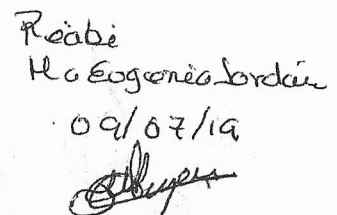 Recibi
Ma Eugenia Jordán
09/07/19